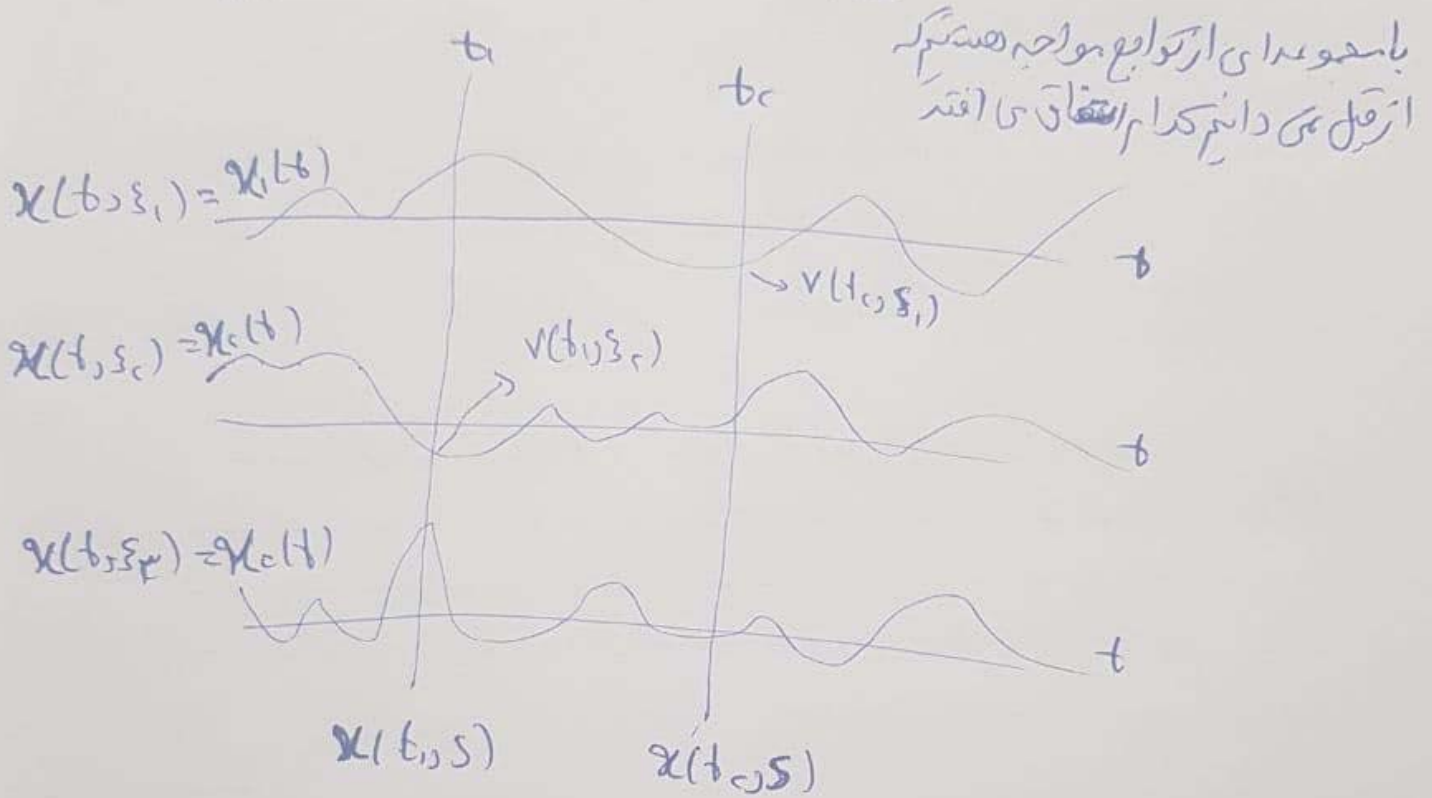 با مجموعه ای از توابع مواجه هستیم که
از قبل نمی دانیم کدام اتفاق می افتد
t۱
t۲
x(t, ξ۱) = x۱(t)
t
v(t۲, ξ۱)
x(t, ξ۲) = x۲(t)
v(t۱, ξ۲)
t
x(t, ξ۳) = x۲(t)
t
x(t۱, S)
x(t۲, S)